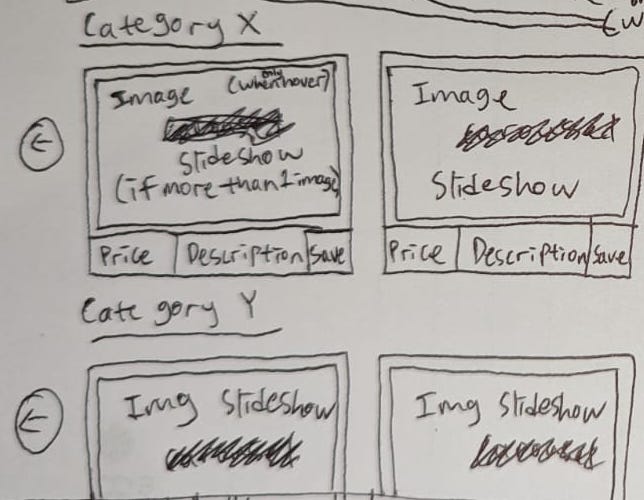 (w
Category X
Image (only when hover)
Slideshow
(if more than 1 image)
Price Description Save
Image
Slideshow
Price Description Save
Category Y
Img Slideshow
Img Slideshow